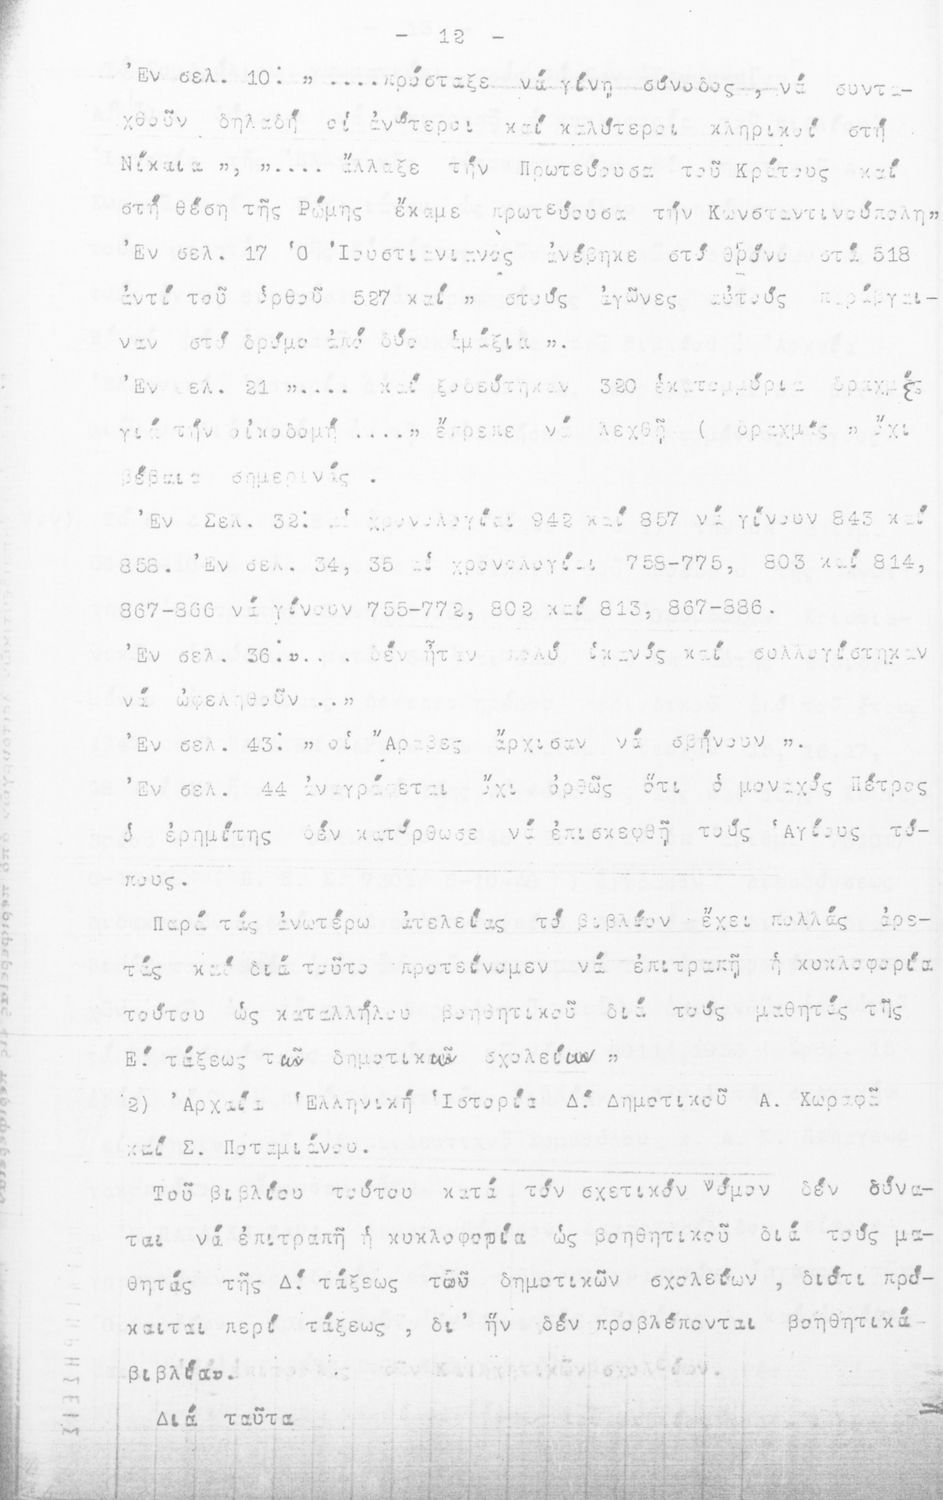 - 12 -
Ἐν σελ. 10: " ....πρόσταξε νά γίνη σύνοδος , νά συντα-
χθοῦν δηλαδή οἱ ἀνώτεροι καί καλύτεροι κληρικοί στή
Νίκαια ", ".... ἄλλαξε τήν Πρωτεύουσα τοῦ Κράτους καί
στή θέση τῆς Ρώμης ἔκαμε πρωτεύουσα τήν Κωνσταντινούπολη"
Ἐν σελ. 17 Ὁ Ἰουστιανιανός ἀνέβηκε στό θρόνο στά 518
ἀντί τοῦ ὀρθοῦ 527 καί " στούς ἀγῶνες αὐτούς παράβγαι-
ναν στό δρόμο ἀπό δύο ἁμάξια ".
Ἐν σελ. 21 ".... καί ξοδεύτηκαν 320 ἑκατομμύρια δραχμές
γιά τήν οἰκοδομή ...." ἔπρεπε νά λεχθῆ ( δραχμές " ὄχι
βέβαια σημερινές .
Ἐν Σελ. 32: αἱ χρονολογίαι 942 καί 857 νά γίνουν 843 καί
858. Ἐν σελ. 34, 35 αἱ χρονολογίαι 758-775, 803 καί 814,
867-866 νά γίνουν 755-772, 802 καί 813, 867-886.
Ἐν σελ. 36:".. . δέν ἦταν πολύ ἱκανός καί συλλογίστηκαν
νά ὠφεληθοῦν .."
Ἐν σελ. 43: " οἱ Ἄραβες ἄρχισαν νά σβήνουν ".
Ἐν σελ. 44 ἀναγράφεται ὄχι ὀρθῶς ὅτι ὁ μοναχός Πέτρος
ὁ ἐρημίτης δέν κατόρθωσε νά ἐπισκεφθῆ τούς Ἁγίους τό-
πους.
Παρά τάς ἀνωτέρω ἀτελείας τό βιβλίον ἔχει πολλάς ἀρε-
τάς καί διά τοῦτο προτείνομεν νά ἐπιτραπῆ ἡ κυκλοφορία
τούτου ὡς καταλλήλου βοηθητικοῦ διά τούς μαθητάς τῆς
Ε΄ τάξεως τῶν δημοτικῶν σχολείων "
2) Ἀρχαία Ἑλληνική Ἱστορία Δ΄ Δημοτικοῦ Α. Χωραφᾶ
καί Σ. Ποταμιάνου.
Τοῦ βιβλίου τούτου κατά τόν σχετικόν νόμον δέν δύνα-
ται νά ἐπιτραπῆ ἡ κυκλοφορία ὡς βοηθητικοῦ διά τούς μα-
θητάς τῆς Δ΄ τάξεως τῶν δημοτικῶν σχολείων , διότι πρό-
κειται περί τάξεως , δι' ἥν δέν προβλέπονται βοηθητικά
βιβλία.
Διά ταῦτα